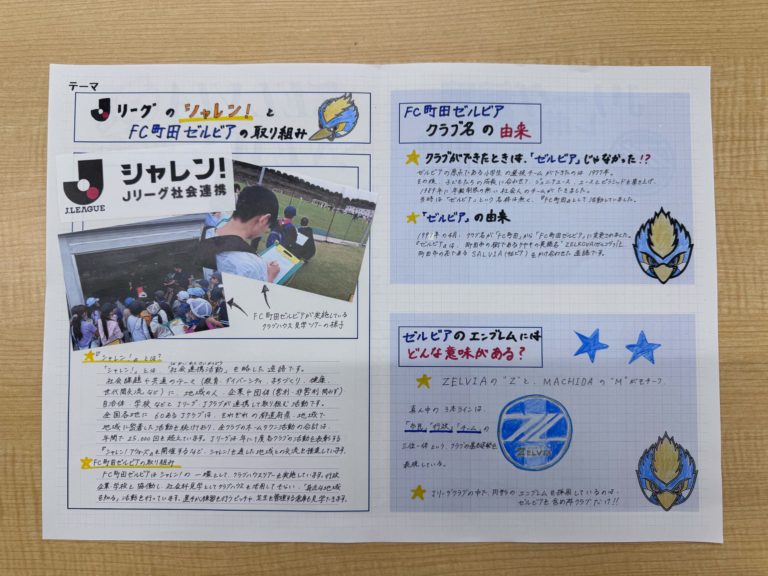 テーマ
Jリーグの シャレン! と
FC町田ゼルビアの取り組み
シャレン!
Jリーグ社会連携
J.LEAGUE
FC町田ゼルビアが実施している
クラブハウス見学ツアーの様子
「シャレン!」とは?
「シャレン!」とは、「社会連携活動」を略した造語です。
社会課題や共通のテーマ(教育、ダイバーシティ、まちづくり、健康、
世代間交流など)に、地域の人・企業や団体(営利・非営利問わず)・
自治体・学校などとJリーグ・Jクラブが連携して取り組む活動です。
全国各地に60あるJクラブは、それぞれの都道府県、地域で
地域に密着した活動を続けており、全クラブのホームタウン活動の合計は、
年間で25,000回を超えています。Jリーグは年に1度各クラブの活動を表彰する
「シャレン!アウォーズ」を開催するなど、シャレン!を通した地域との交流を推進しています。
FC町田ゼルビアの取り組み
FC町田ゼルビアはシャレン!の一環として、クラブハウスツアーを実施しています。行政、
企業、学校と協働し、社会科見学としてクラブハウスを活用してもらい、「身近な地域
を知る」活動を行っています。選手が練習を行うピッチや、芝生を管理する倉庫も見学できます。
FC町田ゼルビア
クラブ名の由来
クラブができたときは、「ゼルビア」じゃなかった!?
ゼルビアの原点である小学生の選抜チームができたのは1977年。
その後、子どもたちの成長に合わせて ジュニアユース、ユースとピラミッドを築き上げ、
1989年に年齢制限の無い社会人のチームができました。
当時は「ゼルビア」という名称は無く、『FC町田』として活動していました。
「ゼルビア」の由来
クラブ名が「FC町田」から「FC町田ゼルビア」に変更されました。
『ゼルビア』は、町田市の樹であるケヤキの英語名「ZELKOVA(ゼルコヴァ)」と、
町田市の花である SALVIA(サルビア)をかけ合わせた造語です。
ゼルビアのエンブレムには
どんな意味がある?
ZELVIAの"Z"と、MACHIDAの"M"がモチーフ。
真ん中の3本ラインは
「市民」「行政」「チーム」の
三位一体という、クラブの基本姿勢を
表現している。
ZELVIA
Jリーグクラブの中で、円形のエンブレムを採用しているのは、
ゼルビアを含め